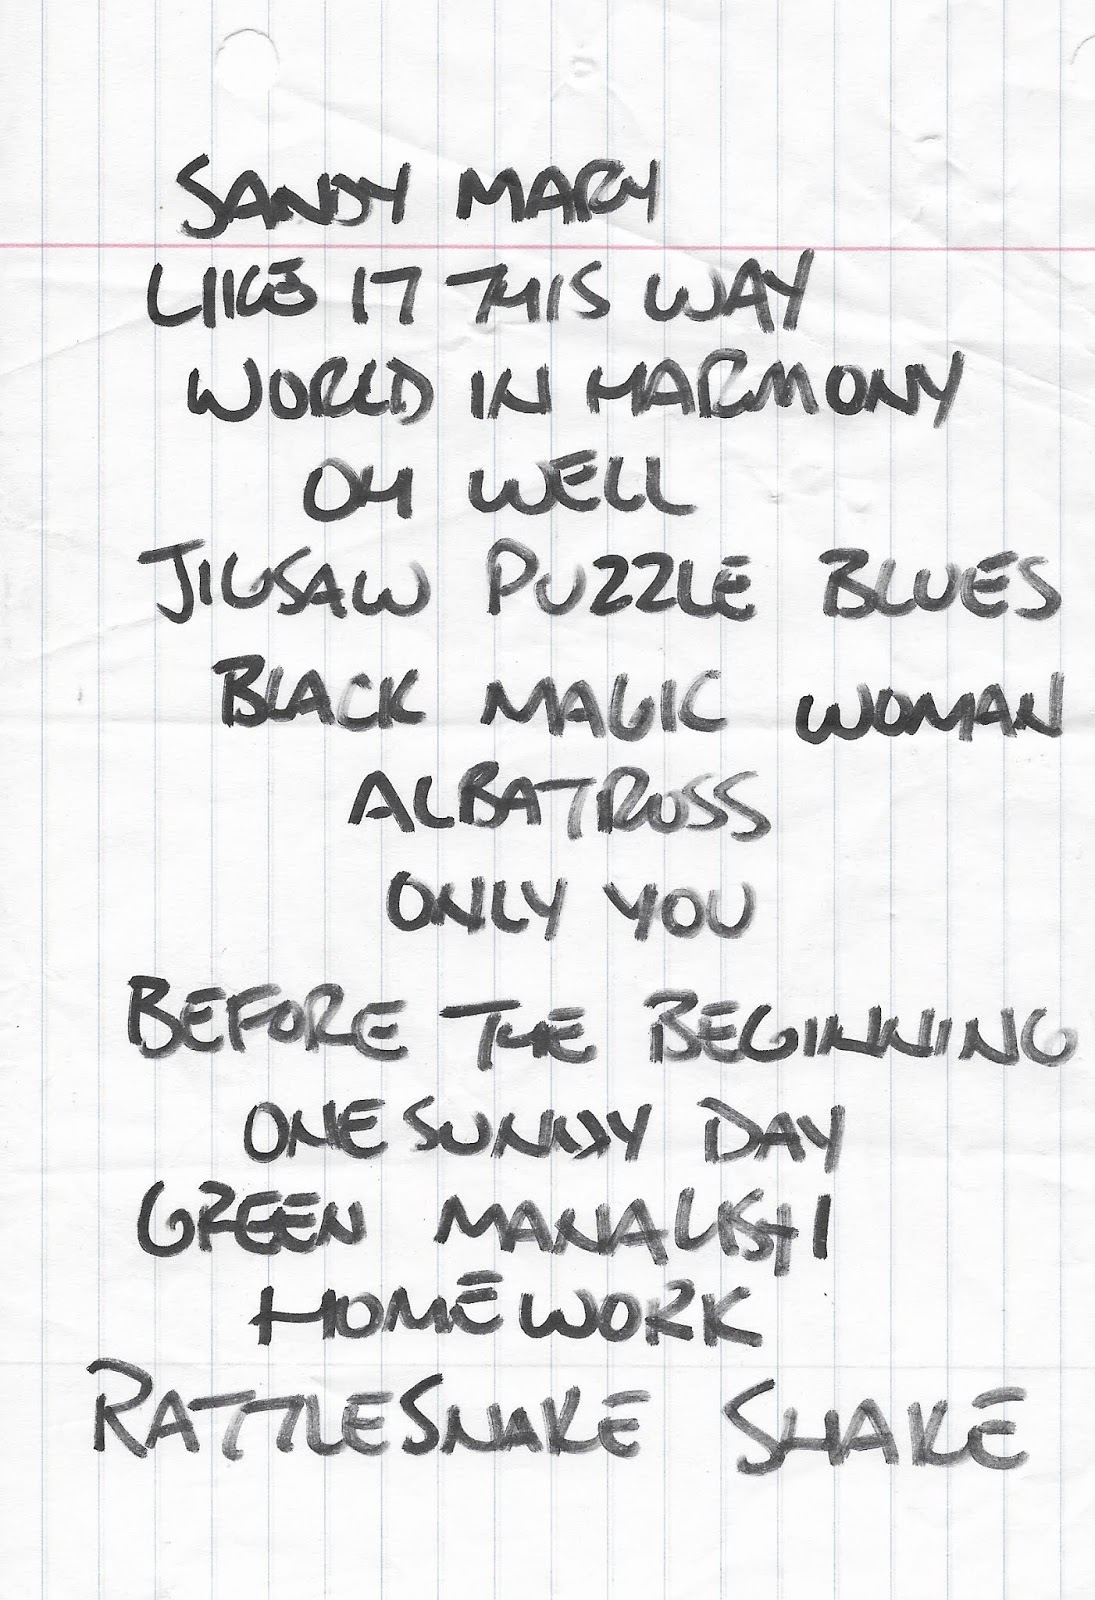 SANDY MARY
LIKE IT THIS WAY
WORLD IN HARMONY
OH WELL
JIGSAW PUZZLE BLUES
BLACK MAGIC WOMAN
ALBATROSS
ONLY YOU
BEFORE THE BEGINNING
ONE SUNNY DAY
GREEN MANALISHI
HOMEWORK
RATTLESNAKE SHAKE